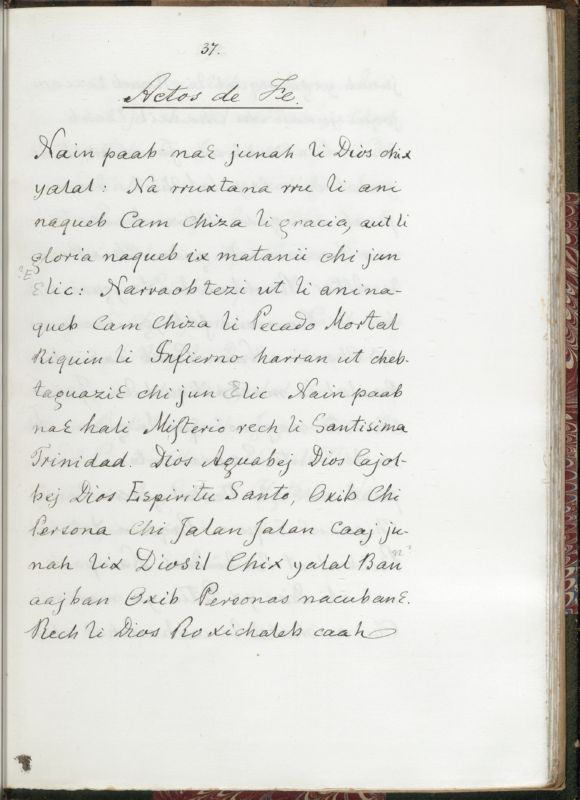 37.
Actos de Fe.
Nain paab naƐ junah li Dios chix
yalal: Na rruxtana rru li ani
naqueb Cam Chiza li gracia, aut li
gloria naqueb ix matanii chi jun
?Ɛ
Ɛlic: Narraob tezi ut li anina-
queb Cam Chiza li Pecado Mortal
Riquin li Infierno harran ut cheb-
taquaziƐ chi jun Ɛlic Nain paab
naƐ hali Misterio rech li Santisima
Trinidad. Dios Aguabej Dios Cajol-
bej Dios Espiritu Santo, Oxib Chi
Persona Chi Jalan Jalan caaj ju-
nah lix Diosil Chix yalal Bau
n?
aajban Oxib Personas nacubanƐ.
Rech li Dios Ro xichaleb caah